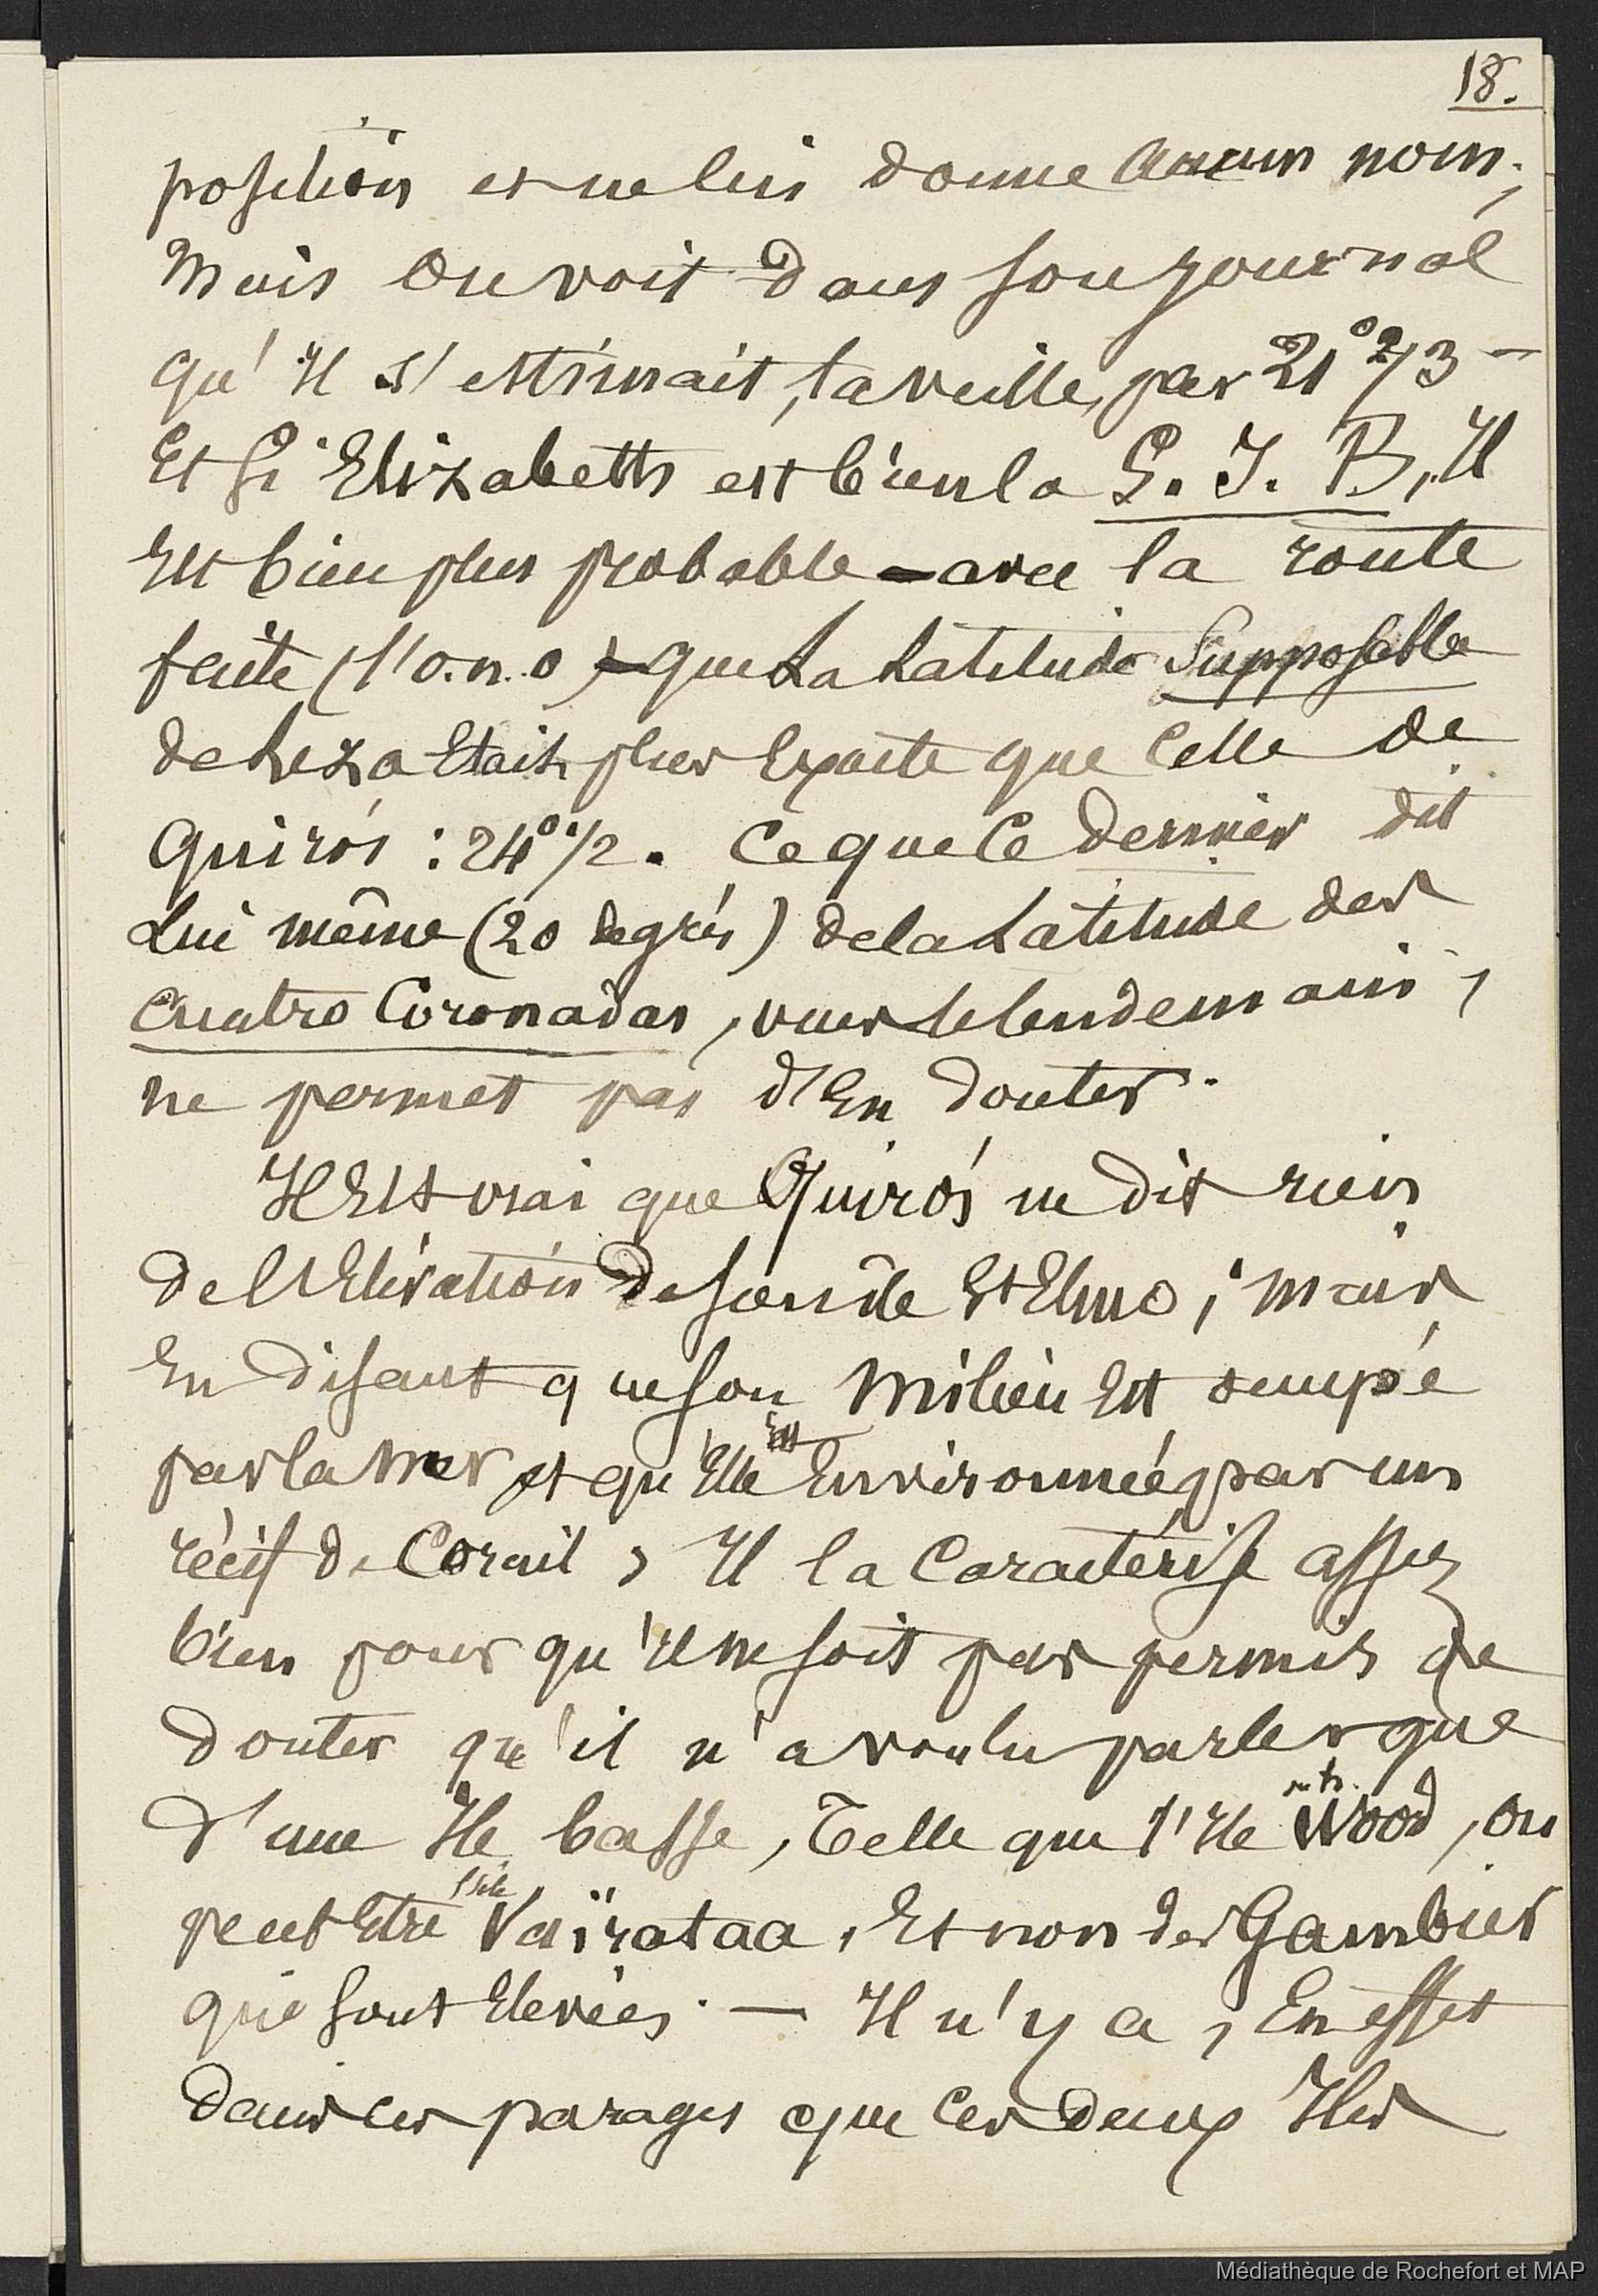 18.
position et ne lui donne aucun nom;
Mais On voit dans son journal
qu'Il s'estimait, la veille, par 21° 2/3 —
Et si Elizabeth est bien la S. J. B, Il
Est bien plus probable — avec la route
faite (l'o.n.o) — que La Latitude Supposable
de Leza Etait plus Exacte que Celle de
Quirós : 24° 1/2. Ce que Ce dernier dit
Lui même (20 degrés) de la Latitude des
Cuatro Coronadas, vues le lendemain,
ne permet pas d'En douter.
Il Est vrai que Quirós ne dit rien
de l'Elévation de son île St Elmo; mais
En disant que son Milieu Est occupé
par la Mer et qu'Elle Est Environnée par un
récif de Corail, Il la Caractérise assez
bien pour qu'il ne soit pas permis de
douter qu'il n'a voulu parler que
d'une Ile basse, Telle que l'Ile Wood, ou
peut Etre l'île Vaïrataa, Et non des Gambier
qui sont Elevées. — Il n'y a, En effet
dans ces parages que Ces deux Iles
Médiathèque de Rochefort et MAP